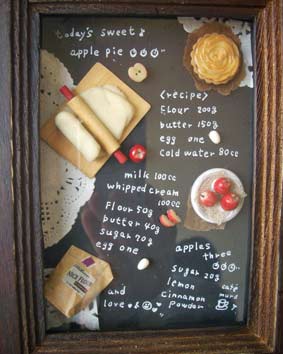 today's sweet♪
apple pie
<recipe>
Flour 200g
butter 150g
egg one
Cold water 80cc
milk 100cc
whipped cream
100cc
Flour 50g
butter 40g
sugar 70g
egg one
apples
three
sugar 20g
lemon
cinnamon
powder
and
love
café